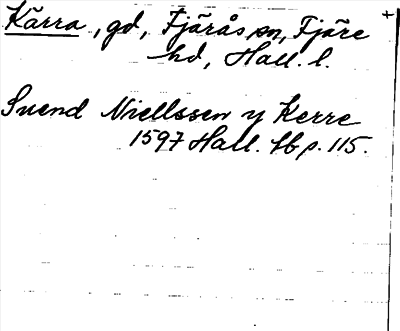 Kärra, gd, Fjärås sn, Fjäre
hd, Hall. l.
Svend Niellssen y Kerre
1597 Hall. lb p. 115.